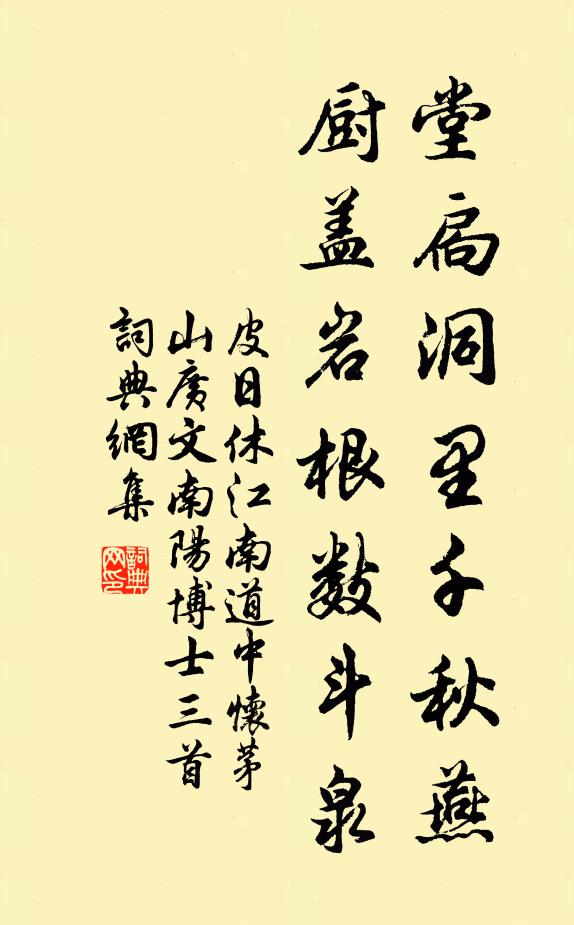 堂扃洞里千秋燕
厨盖岩根数斗泉
皮日休江南道中懷茅
山廣文南陽博士三首
詞典網集
詞典
网印